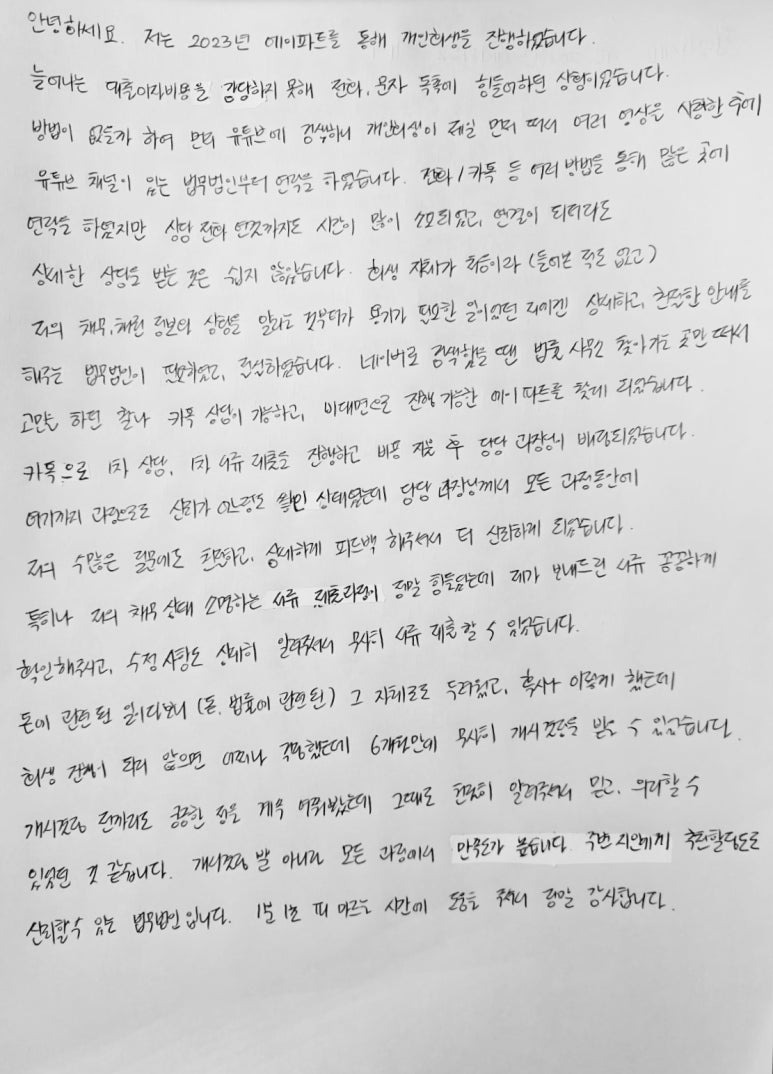 안녕하세요. 저는 2023년 에이파트를 통해 개인회생을 진행하였습니다.
늘어나는 대출이자비용을 감당하지 못해 전화, 문자 독촉에 힘들어하던 상황이었습니다.
방법이 없을까 하여 먼저 유튜브에 검색하니 개인회생이 제일 먼저 떠서 여러 영상을 시청한 후에
유튜브 채널이 있는 법무법인부터 연락을 하였습니다. 전화/카톡 등 여러 방법을 통해 많은 곳에
연락을 하였지만 상담 전화 연결까지도 시간이 많이 소모되었고, 연결이 되더라도
상세한 상담을 받는 것은 쉽지 않았습니다. 회생 자체가 처음이라 (들어본 적도 없고)
저의 채무, 채권 정보와 상황을 알리는 것부터가 용기가 필요한 일이었던 저에겐 상세하고, 친절한 안내를
해주는 법무법인이 필요하였고, 절실하였습니다. 네이버로 검색했을 땐 법률 사무소 찾아가는 곳만 떠서
고민을 하던 찰나 카톡 상담이 가능하고, 비대면으로 진행 가능한 에이파트를 찾게 되었습니다.
카톡으로 1차 상담, 1차 서류 제출을 진행하고 비용 지불 후 담당 과장님이 배정되었습니다.
여기까지 과정으로도 신뢰가 어느정도 쌓인 상태였는데 담당 과장님께서 모든 과정동안에
저의 수많은 질문에도 친절하고, 상세하게 피드백 해주셔서 더 신뢰하게 되었습니다.
특히나 저의 채무 상태 소명하는 서류 제출과정이 정말 힘들었는데 제가 보내드린 서류 꼼꼼하게
확인해주시고, 수정 사항도 상세히 알려주셔서 무사히 서류 제출할 수 있었습니다.
돈이 관련된 일이다보니 (돈, 법률에 관련된) 그 자체로도 두려웠고, 혹시나 이렇게 했는데
회생 진행이 되지 않으면 어쩌나 걱정했는데 6개월만에 무사히 개시결정을 받을 수 있었습니다.
개시결정 전까지도 궁금한 점을 계속 여쭤봤는데 그때도 친절히 알려주셔서 믿고, 의지할 수
있었던 것 같습니다. 개시결정 뿐 아니라 모든 과정에서 만족도가 높습니다. 주변 지인에게 추천할정도로
신뢰할수 있는 법무법인입니다. 1분 1초 피 마르는 시간에 도움을 주셔서 정말 감사합니다.